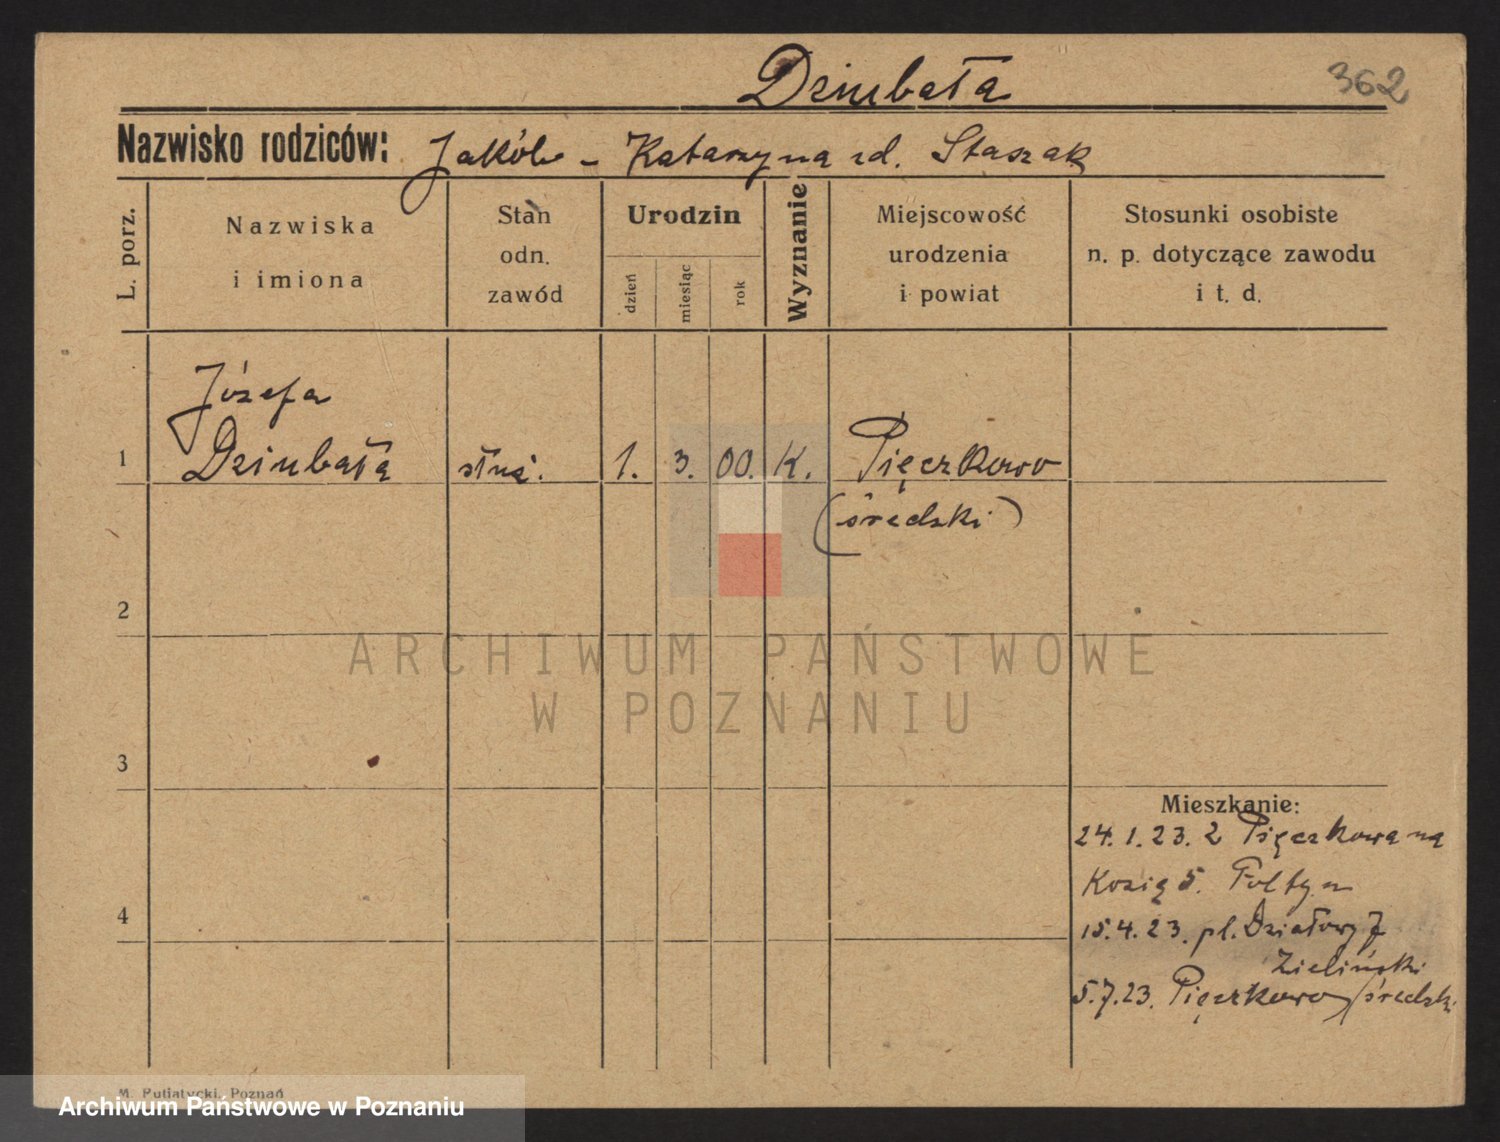 Dziubała 362
Nazwisko rodziców: Jakób - Katarzyna zd. Staszak
L. porz.
Nazwiska
i imiona
Stan
odn.
zawód
Urodzin
dzień
miesiąc
rok
Wyznanie
Miejscowość
urodzenia
i powiat
Stosunki osobiste
n. p. dotyczące zawodu
i t. d.
Józefa
1 Dziubała służ. 1. 3. 00. K. Pięczkowo
(średzki)
2
ARCHIWUM PAŃSTWOWE
W POZNANIU
3
Mieszkanie:
24.1.23. z Pięczkowa na
Kozią 5. Foltyn
4
15.4.23. pl. Działowy 7
Zieliński
5.7.23. Pięczkowo /średzki
M. Putiatycki, Poznań
Archiwum Państwowe w Poznaniu